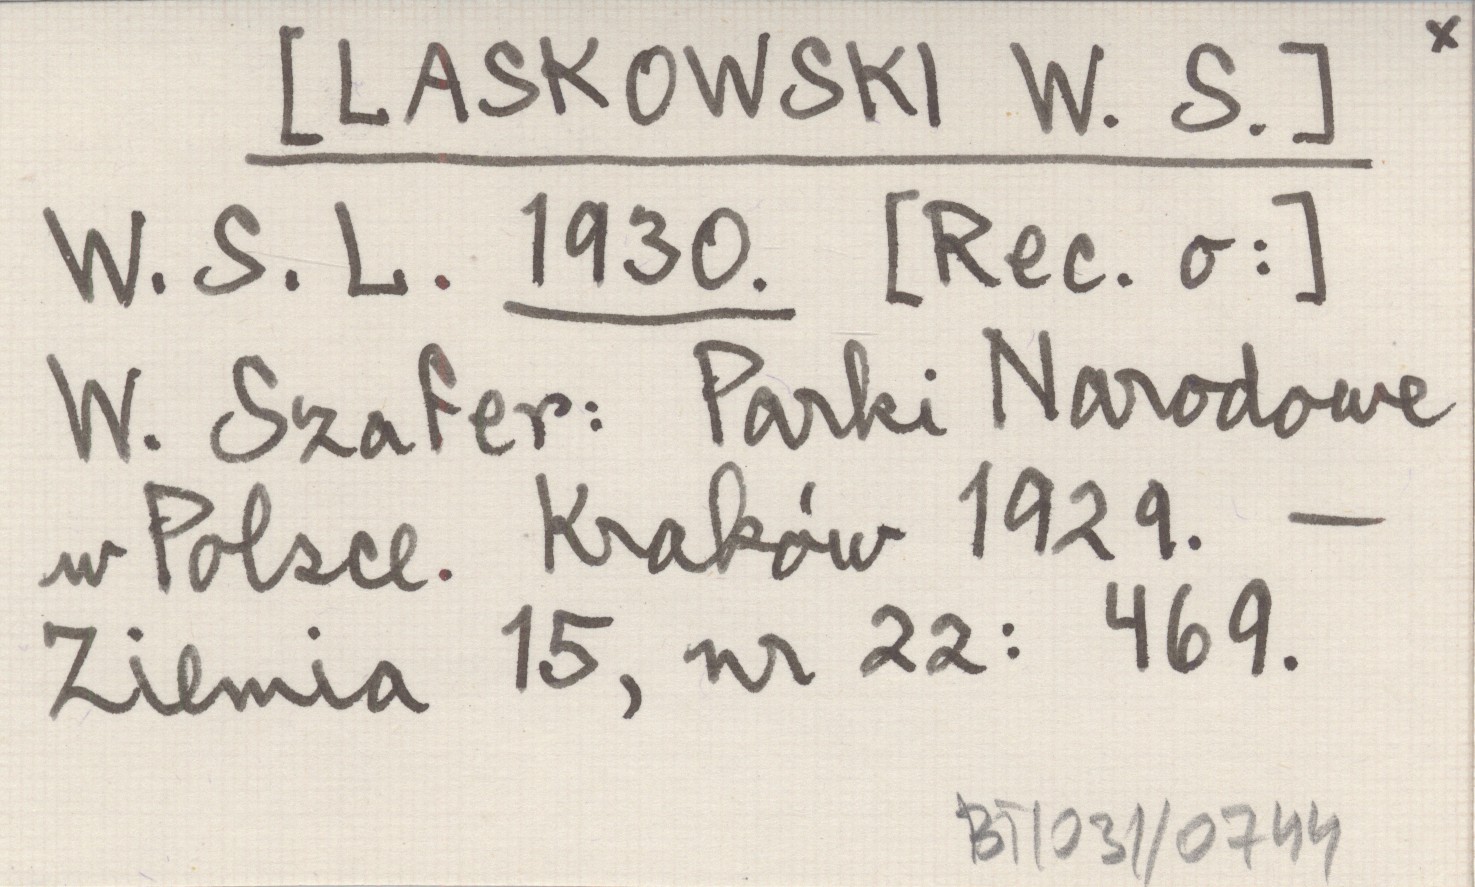 x
[LASKOWSKI W. S.]
W. S. L. 1930. [Rec. o:]
W. Szafer: Parki Narodowe
w Polsce. Kraków 1929. —
Ziemia 15, nr 22: 469.
BT/031/0744